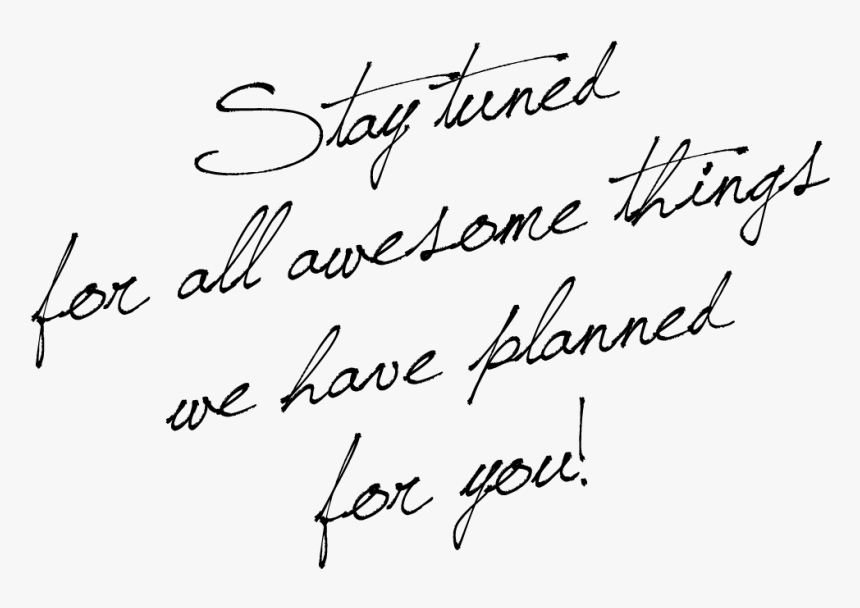 Stay tuned
for all awesome things
we have planned
for you!